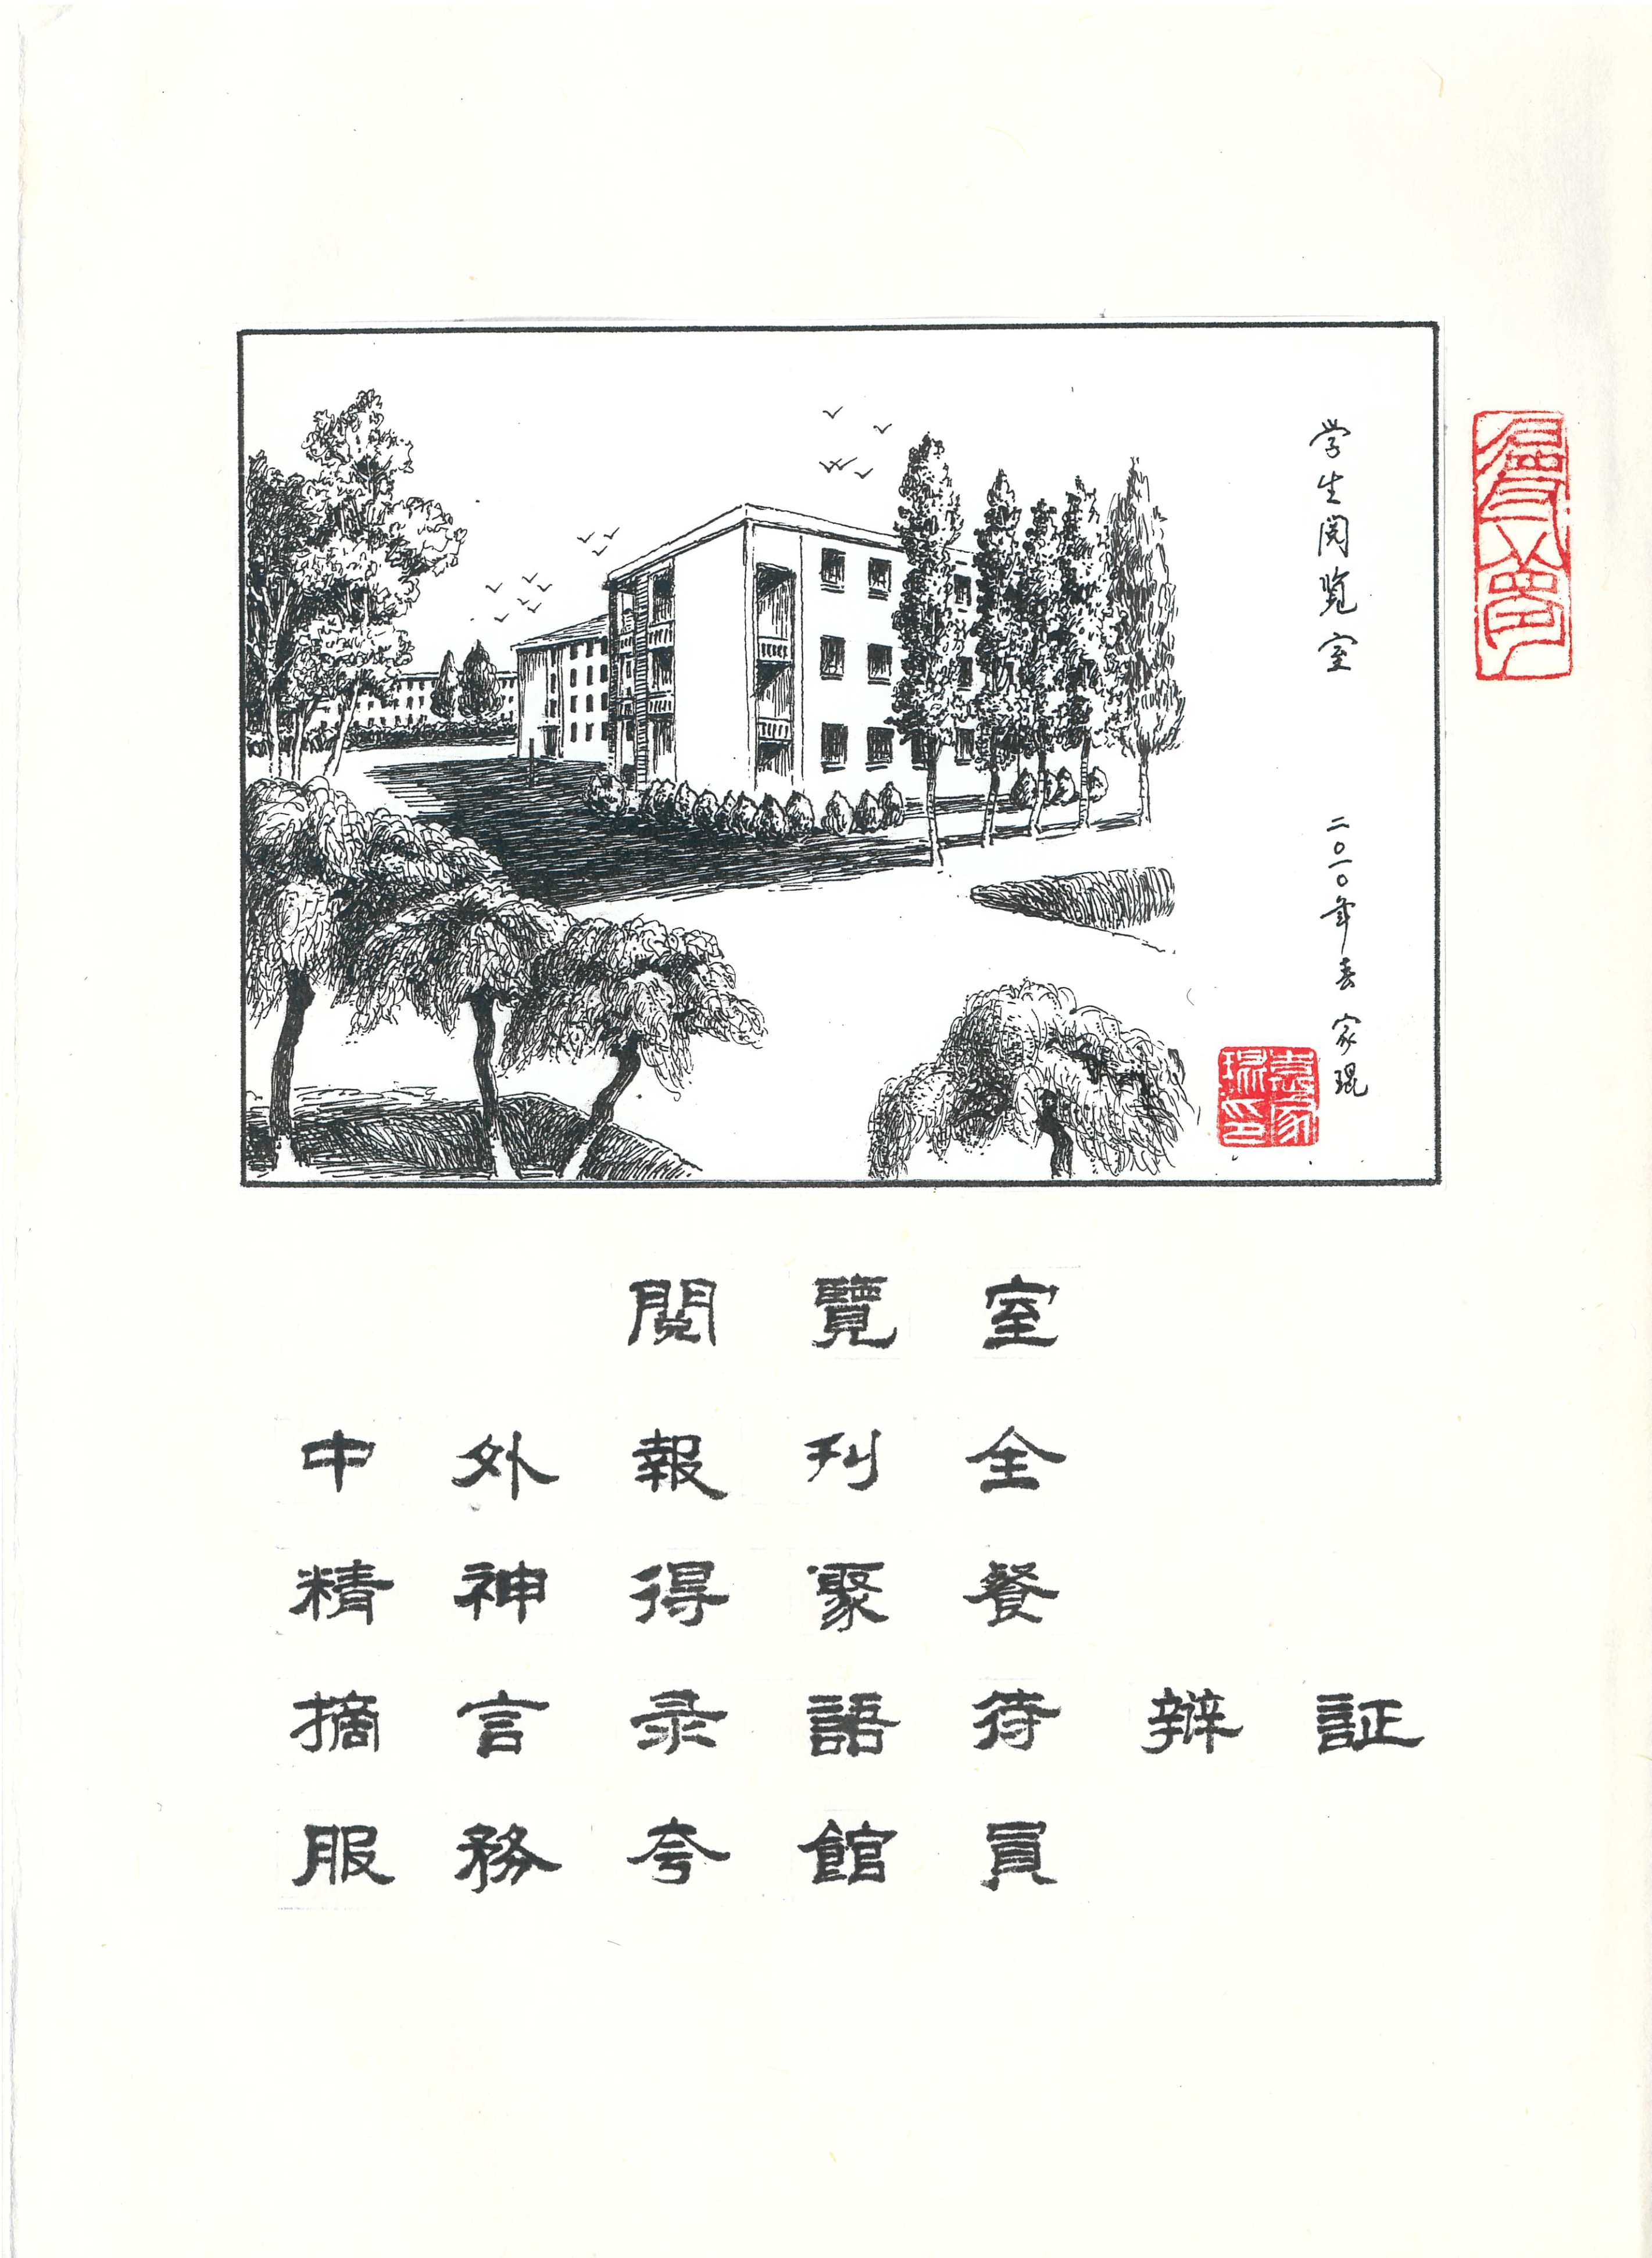 学生阅览室
二〇一〇年春 家琨
袁家琨印
閱覽室
中外報刊全
精神得聚餐
摘言录語待辯証
服務夸館員